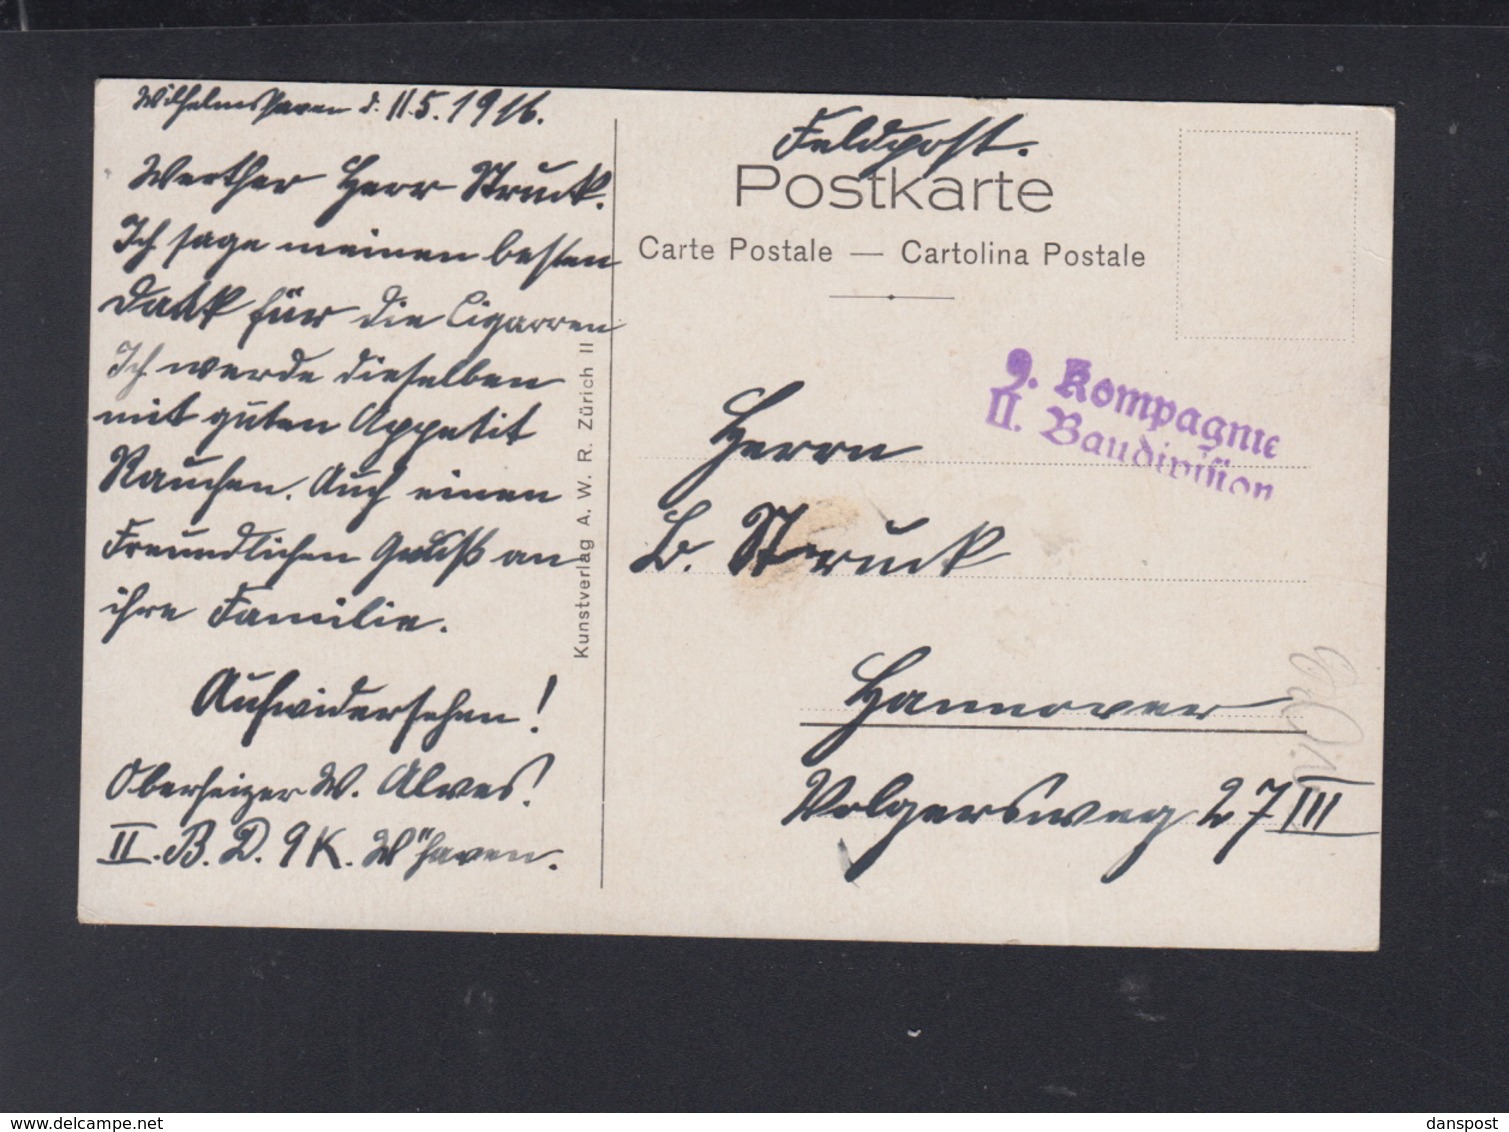 Wilhelmshaven d. 11.5.1916.
Werther Herr Struck.
Ich sage meinen besten
Dank für die Cigarren
Ich werde dieselben
mit guten Appetit
Rauchen. Auch einen
Freundlichen Gruß an
ihre Familie.
Aufwidersehen!
Oberheizer W. Alves!
II. B. D. 9 K. W"haven.
Kunstverlag A. W. R. Zürich II
Feldpost.
Postkarte
Carte Postale — Cartolina Postale
9. Kompagnie
II. Baudivision
Herrn
B. Struck
Hannover
Volgersweg 27 III
delcampe.net
danspost